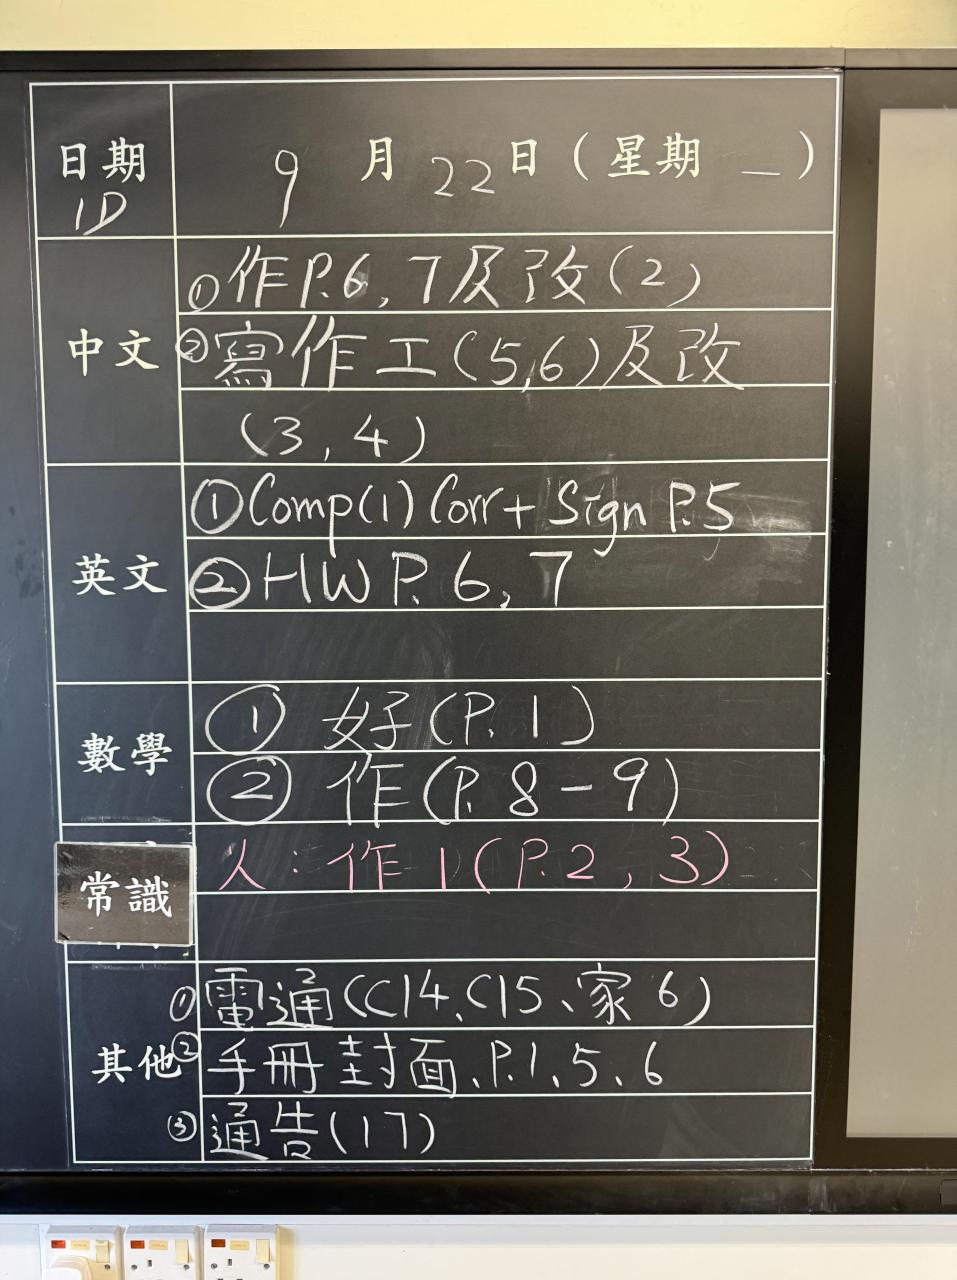 日期 9月22日(星期一)
1D
中文 ①作P.6,7及改(2)
②寫作工(5,6)及改
(3,4)
英文 ①Comp(1) Corr+ Sign P.5
②HW P. 6, 7
數學 ① 好(P.1)
② 作(P.8-9)
常識 人:作1(P.2,3)
其他 ①電通(C14、C15、家6)
②手冊封面、P.1、5、6
③通告(17)